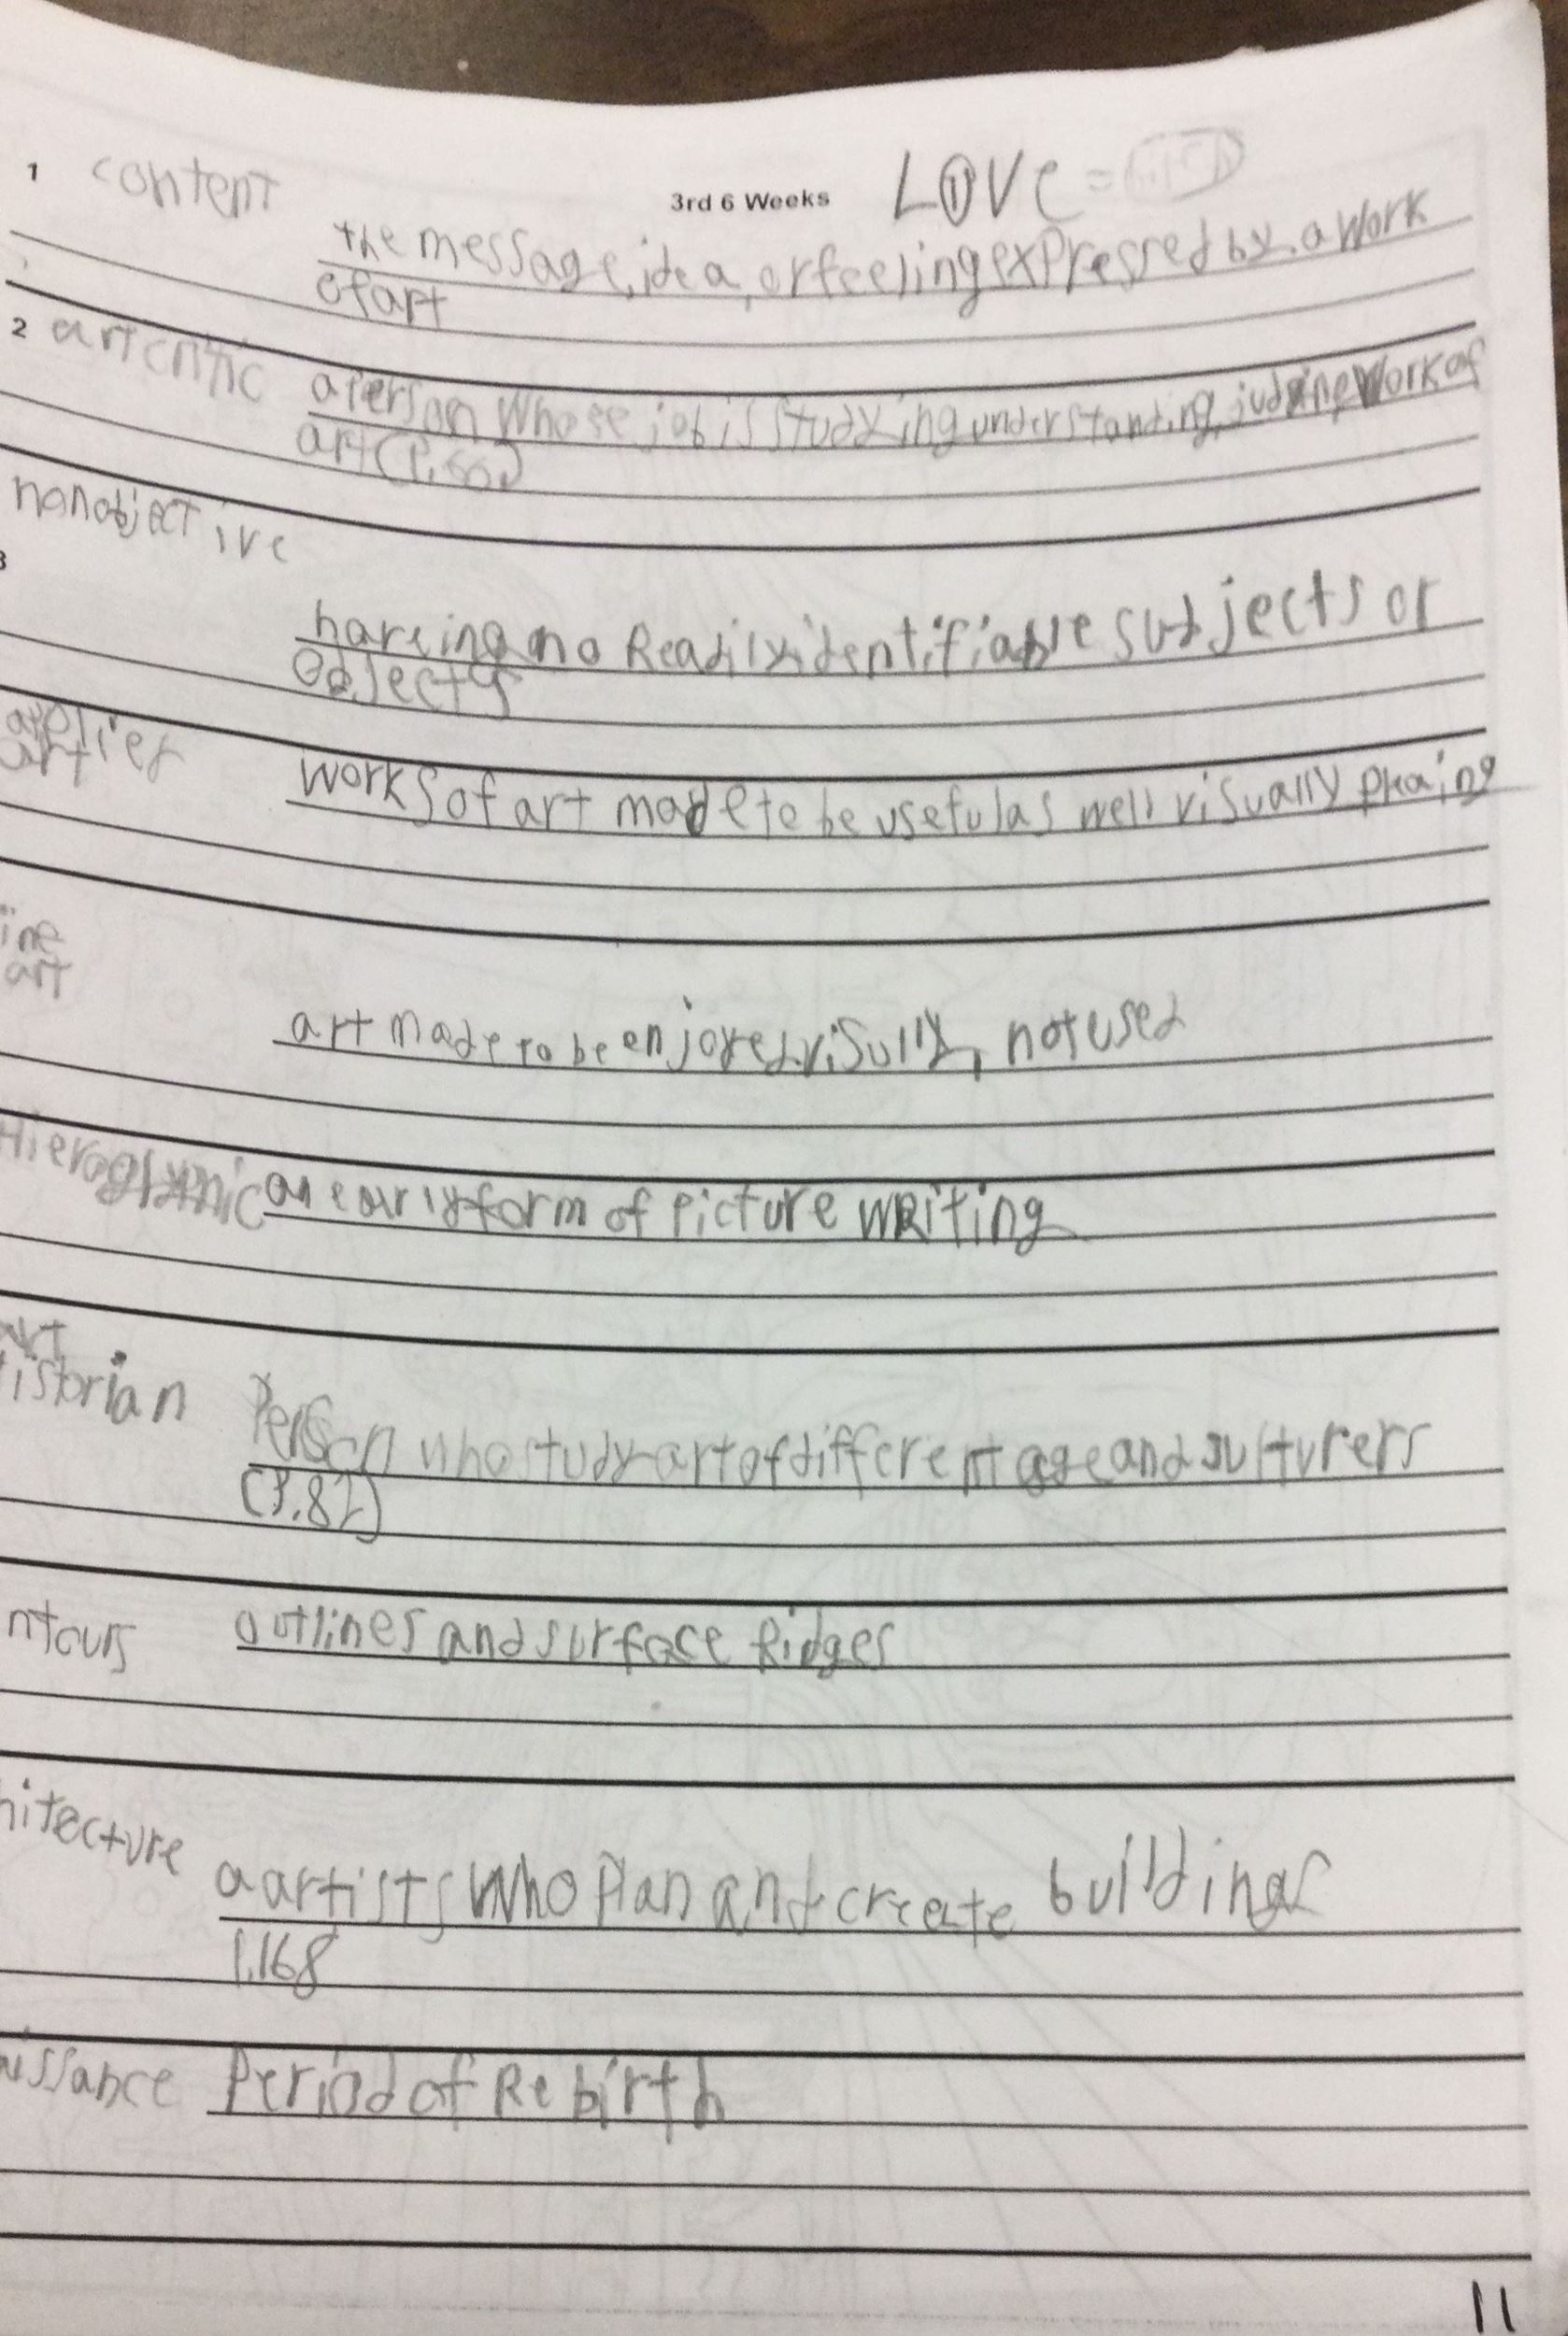 3rd 6 Weeks LOVE =
1 content
the message, idea, or feeling expressed by a work
of art
2 art critic a person whose job is studying understanding, judging work of
art (P.
nonobjective
3
no Readily identifiable subjects or
objects
applied
art
works of art made to be useful as well visually
ine
art
art made to be enjoyed visully, not used
Hieroglyphic an early form of picture writing
art
istorian Person who study art of different age and culturers
(P.82)
ntours outlines and surface Ridges
hitecture a artists who Plan and create buildings
1.168
aissance Period of Rebirth
11